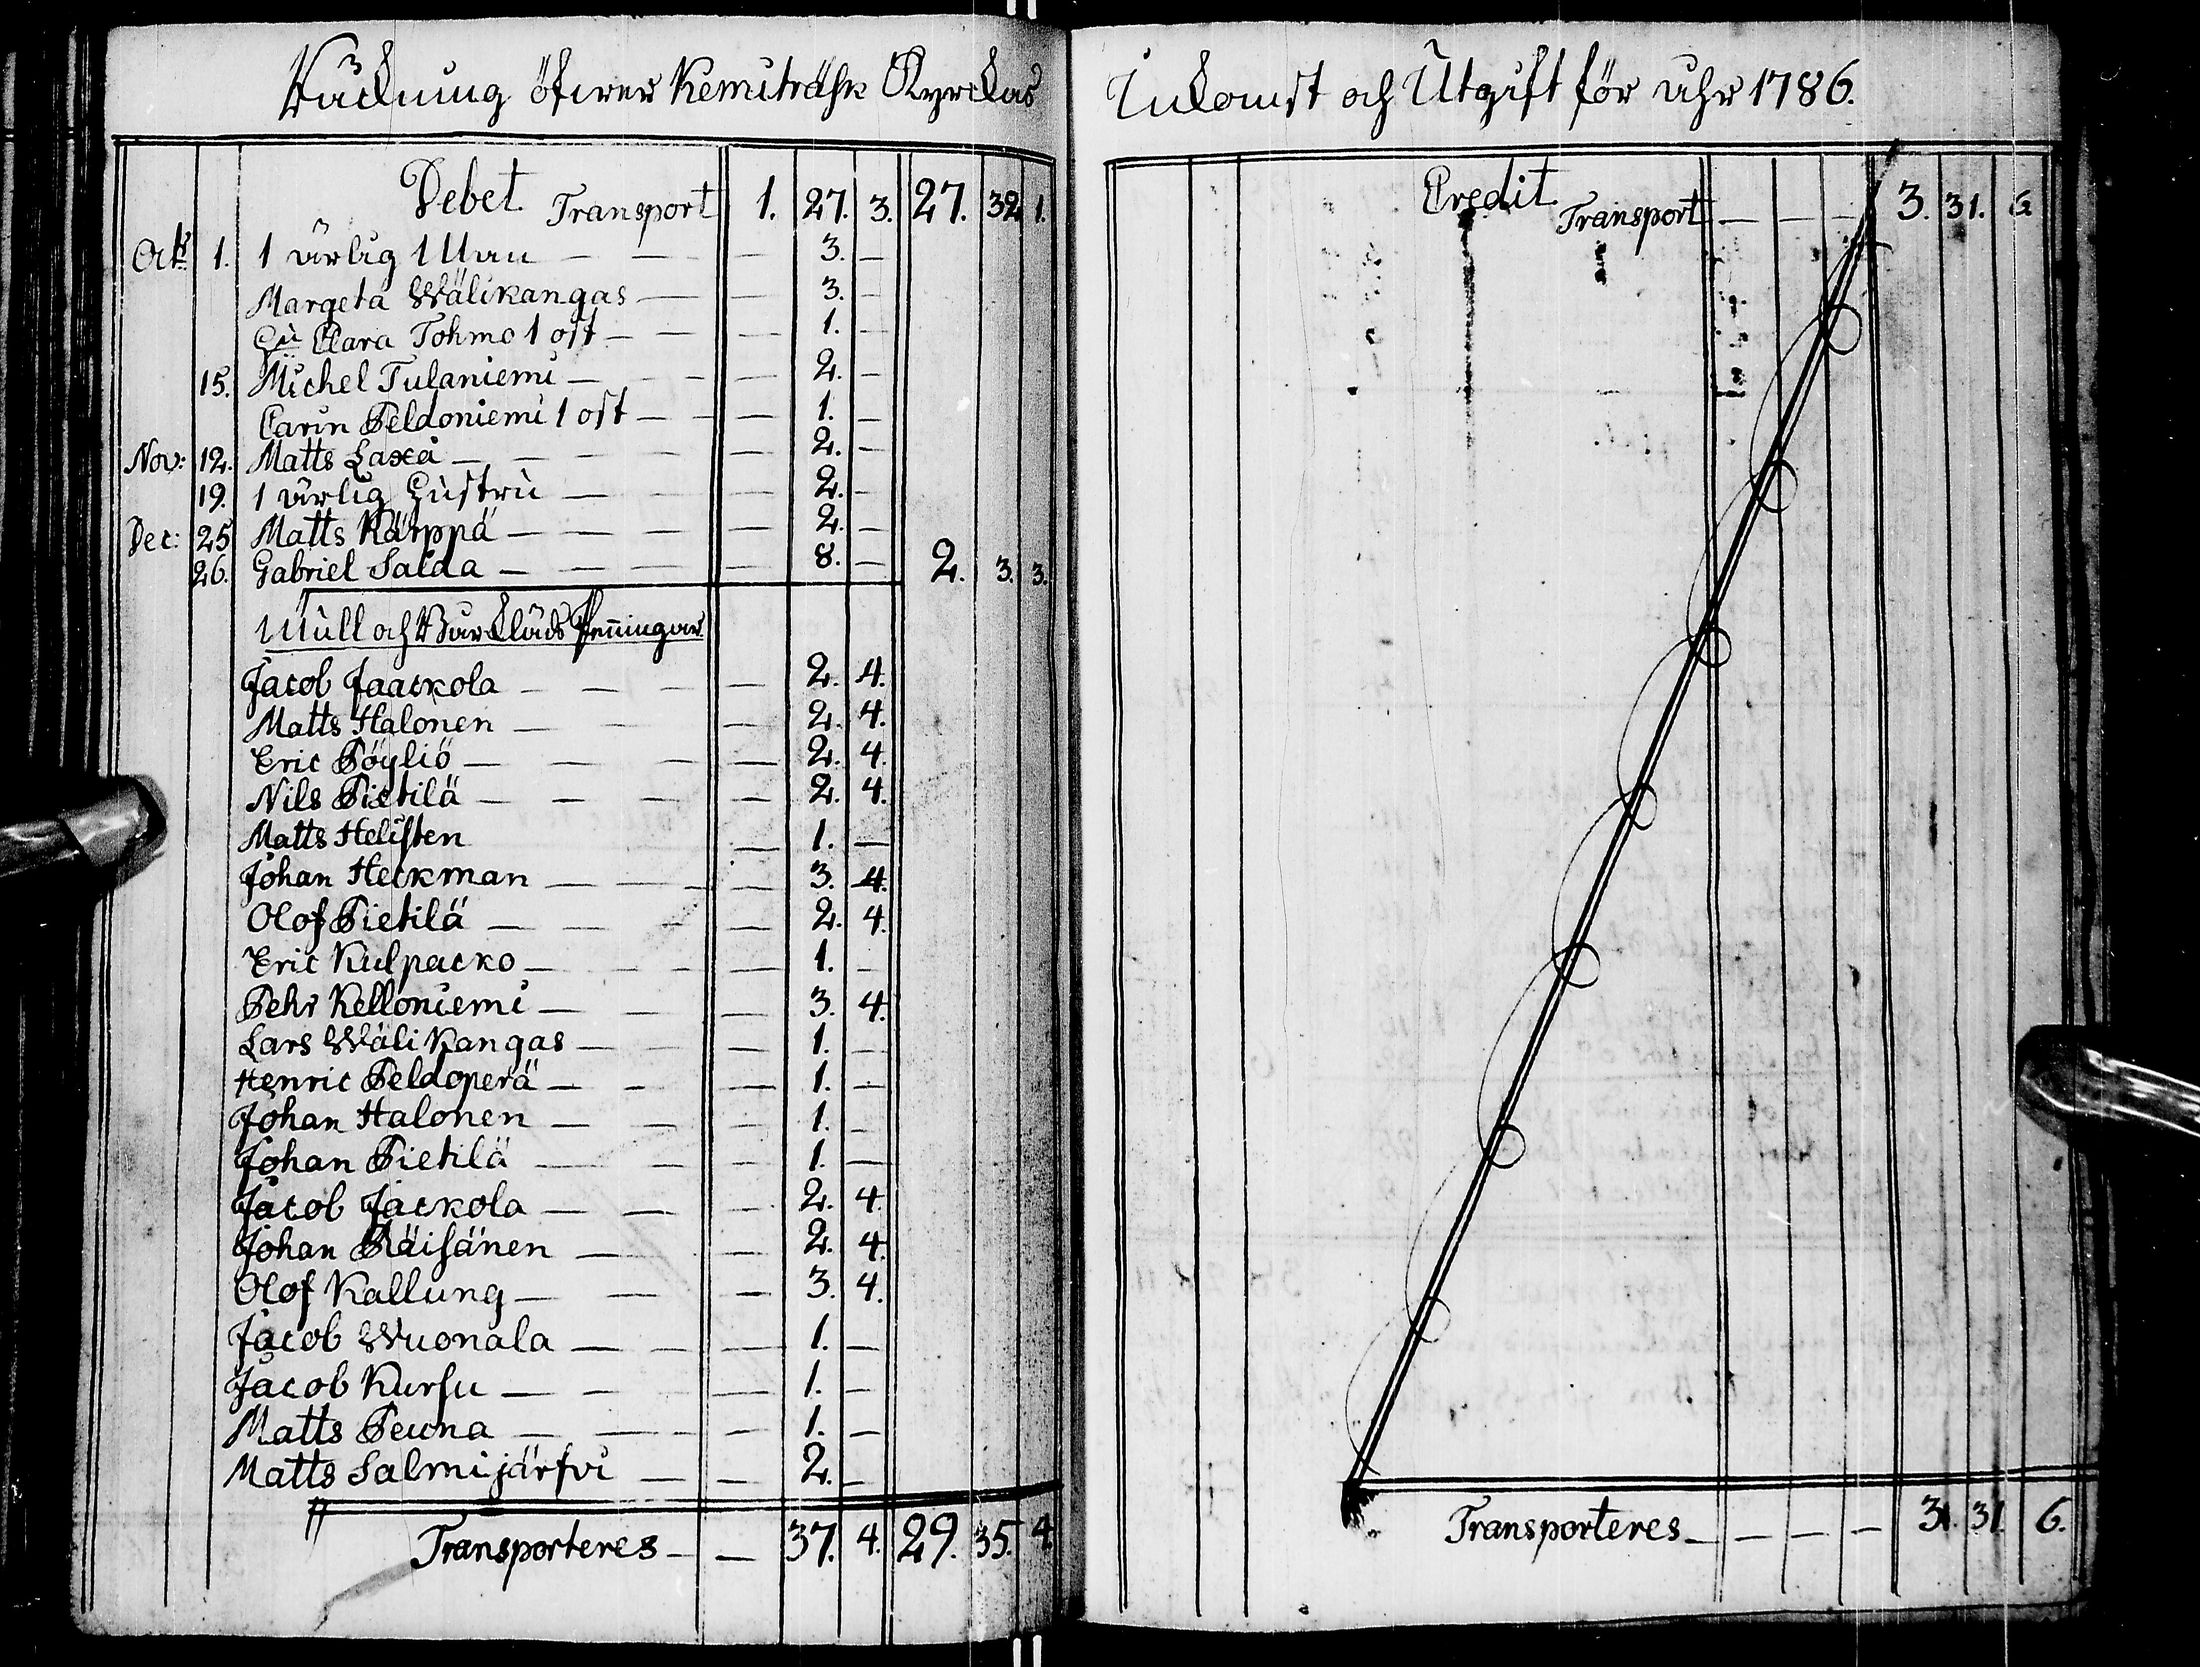 Räckning öfwer Kemiträsk Kyrckas
Debet Transport 1. 27. 3. 27. 32. 1.
Oct: 1. 1 ärlig Man — — — 3. —
Margeta Wälikangas — — 3. —
Hu Clara Tohmo 1 ost — — — 1. —
15. Michel Tulaniemi — — — 2. —
Carin Peldoniemi 1 ost — — — 1. —
Nov: 12. Matts Laxa — — — — 2. —
19. 1 ärlig Hustru — — — 2. —
Dec: 25 Matts Kärppä — — — — 2. —
26. Gabriel Salda — — — — 8. — 2. 3. 3.
Mull och Bårkläds Penningar
Jacob Jaackola — — — — 2. 4.
Matts Halonen — — — — 2. 4.
Eric Pöyliö — — — — 2. 4.
Nils Pietilä — — — — 2. 4.
Matts Helisten — 1. —
Johan Heckman — — — 3. 4.
Olof Pietilä — — — — 2. 4.
Eric Kulpacko — — — — 1. —
Pehr Kelloniemi — — — — 3. 4.
Lars Wälikangas — — — 1. —
Henric Peldoperä — — — 1. —
Johan Halonen — — — — 1. —
Johan Pietilä — — — 1. —
Jacob Jackola — — — 2. 4.
Johan Räisänen — — — 2. 4.
Olof Kallung — — — — 3. 4.
Jacob Wuonala — — — 1. —
Jacob Kursu — — — — 1. —
Matts Peuna — — — — 1. —
Matts Salmijärfvi — — 2. —
Transporteres — — 37. 4. 29. 35. 4.
Inkomst och Utgift för åhr 1786.
Credit Transport — — — 3. 31. 6.
Transporteres — — — — 31. 6.